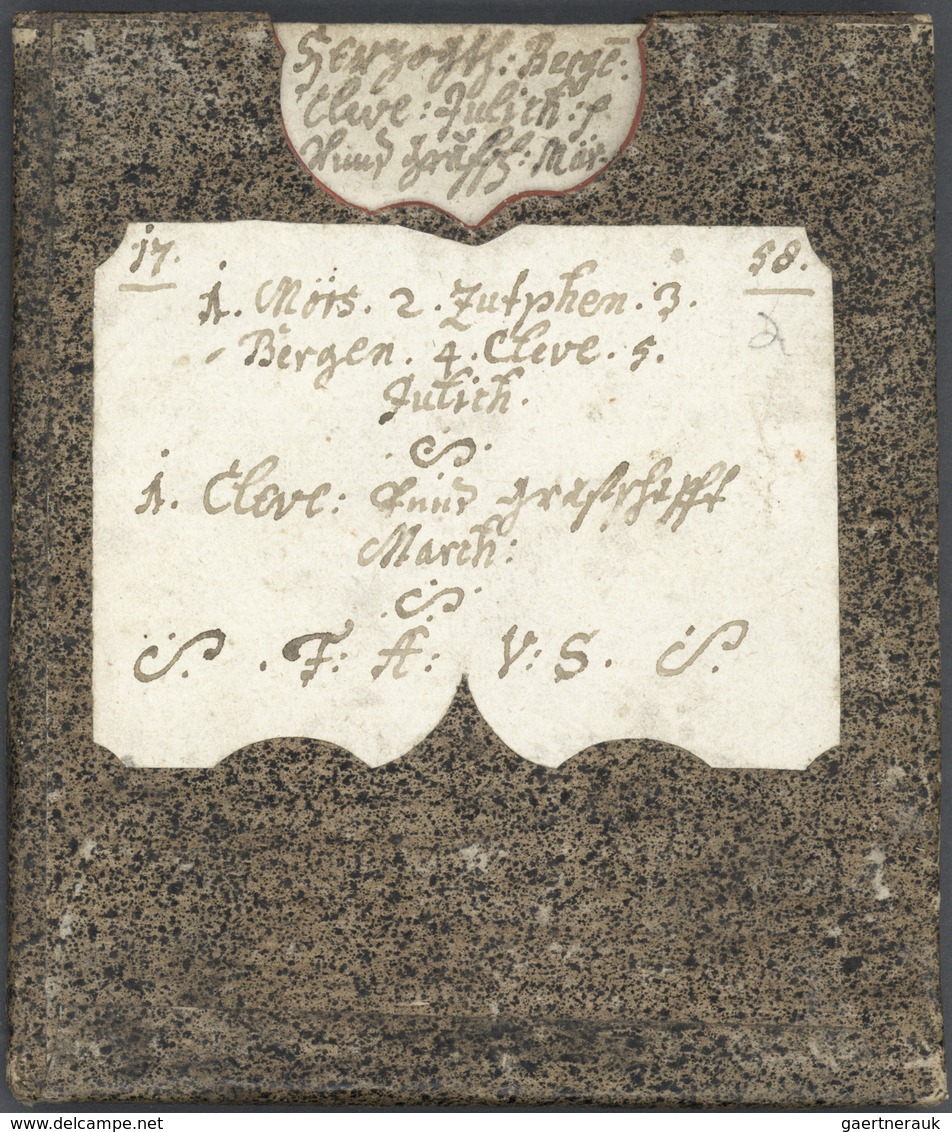 Herzogth: Bergē.
Cleve: Julich: p.
Vnnd Graffsch: Mör.
17. 58.
1. Mörs. 2. Zutphen. 3.
Bergen. 4. Cleve. 5.
Julich.
1. Cleve: Vnnd graffschafft
March:
S. F: A: V: S. S.
www.delcampe.net
gaertnerauk